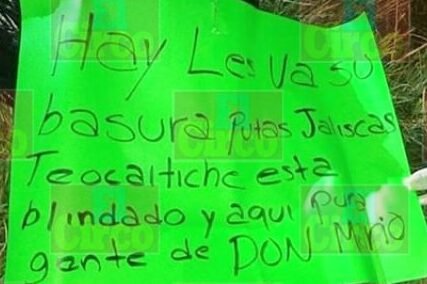 Hay Les va su
basura Putas Jaliscas
Teocaltiche esta
blindado y aqui pura
gente de DON Mario